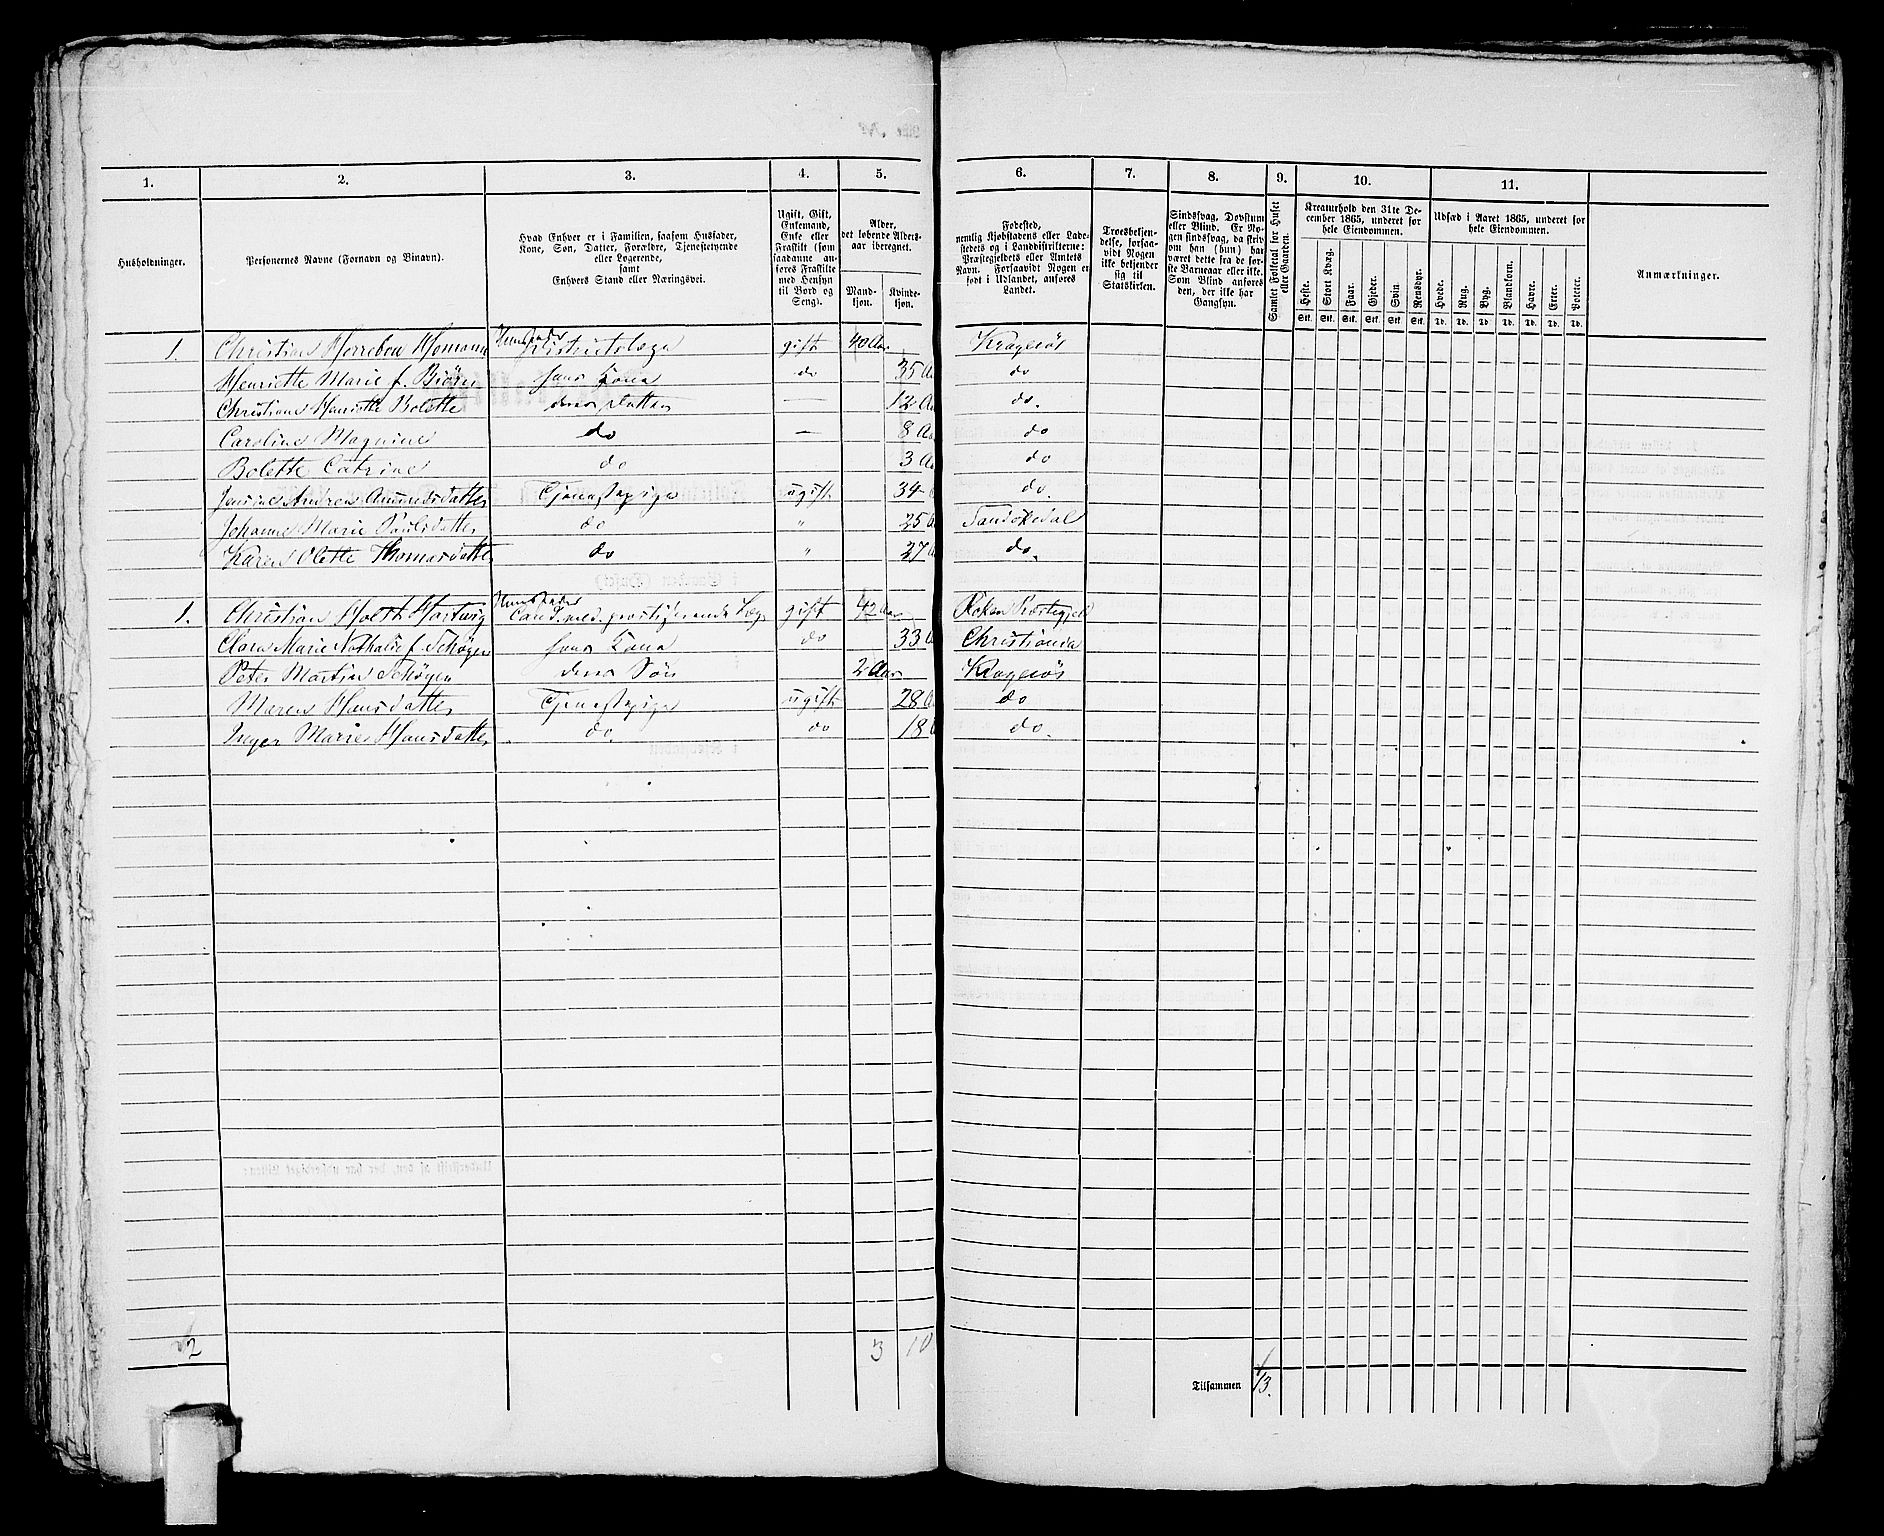 1. 2. 3. 4. 5. 6. 7. 8. 9. 10. 11.
Husholdninger.
Personernes Navne (Fornavn og Binavn).
Hvad Enhver er i Familien, saasom Husfader,
Kone, Søn, Datter, Forældre, Tjenestetyende
eller Logerende,
samt
Enhvers Stand eller Næringsvei.
Ugift, Gift,
Enkemand,
Enke eller
Fraskilt (som
saadanne an-
føres Fraskilte
med Hensyn
til Bord og
Seng).
Alder,
det løbende Alders-
aar iberegnet.
Mand-
kjøn.
Kvinde-
kjøn.
Fødested,
nemlig Kjøbstadens eller Lade-
stedets og i Landdistrikterne:
Præstegjeldets eller Amtets
Navn. Forsaavidt Nogen er
født i Udlandet, anføres
Landet.
Troesbekjen-
delse, forsaa-
vidt Nogen
ikke bekjender
sig til
Statskirken.
Sindssvag, Døvstum
eller Blind. Er No-
gen sindssvag, da skriv
om han (hun) har
været dette fra de før-
ste Barneaar eller ikke.
Som Blind anføres
den, der ikke har
Gangsyn.
Samlet Folketal for Huset
eller Gaarden.
Kreaturhold den 31te De-
cember 1865, underet for
hele Eiendommen.
Heste. Stort Kvæg. Faar. Gjeder. Svin. Rensdyr.
Stk. Stk. Stk. Stk. Stk. Stk.
Udsæd i Aaret 1865, underet for
hele Eiendommen.
Hvede. Rug. Byg. Blandkorn. Havre. Erter. Poteter.
Td. Td. Td. Td. Td. Td. Td.
Anmærkninger.
1. Christian Horrebow Homann Huusfader Districtslæge gift 40 Aar Kragerøe
Henriette Marie f. Biørn hans Kone do 35 Aar do
Christiane Henriette Bolette deres Datter — 12 Aar do.
Caroline Magnine do — 8 Aar do
Bolette Catrine do 3 Aar do
Jensine Andrea Amundsdatter Tjenestepige ugift 34 do.
Johanne Marie Paulsdatter do " 25 Sandøkedal
Karen Olette Thomasdatter do " 27 do.
1. Christian Holst Hartwig Huusfader Cand. med. practiserende Læge gift 42 Aar Røken Præstegjeld
Clara Marie Nathalie f. Schøyen hans Kone do 33 Christiania
Peter Martin Schøyen deres Søn 2 Aar Kragerøe
Maren Hansdatter Tjenestepige ugift 28 do
Inger Marie Hansdatter do. do 18 do.
2 3 10
Tilsammen 13.